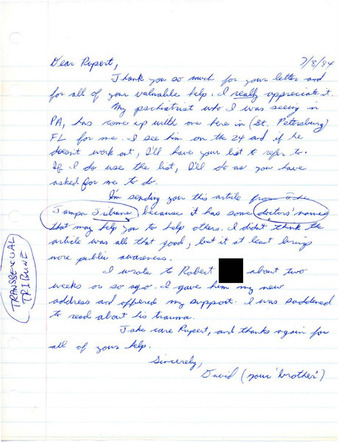 Dear Rupert,
7/8/84
Thank you so much for your letter and
for all of your valuable help. I really appreciate it.
My psychiatrist who I was seeing in
PA, has come up with one here in (St. Petersburg)
FL for me. I see him on the 24 and if he
doesn't work out, I'll have your list to refer to.
If I do use the list, I'll do as you have
asked for me to do.
I'm sending you this article from the
Tampa Tribune, because it has some doctors' names
that may help you to help others. I didn't think the
article was all that good, but it at least brings
more public awareness.
I wrote to Robert about two
weeks or so ago. I gave him my new
address and offered my support. I was saddened
to read about his trauma.
Take care Rupert, and thanks again for
all of your help.
Sincerely,
David (your 'brother')
TRANSSEXUAL
TRIBUNE